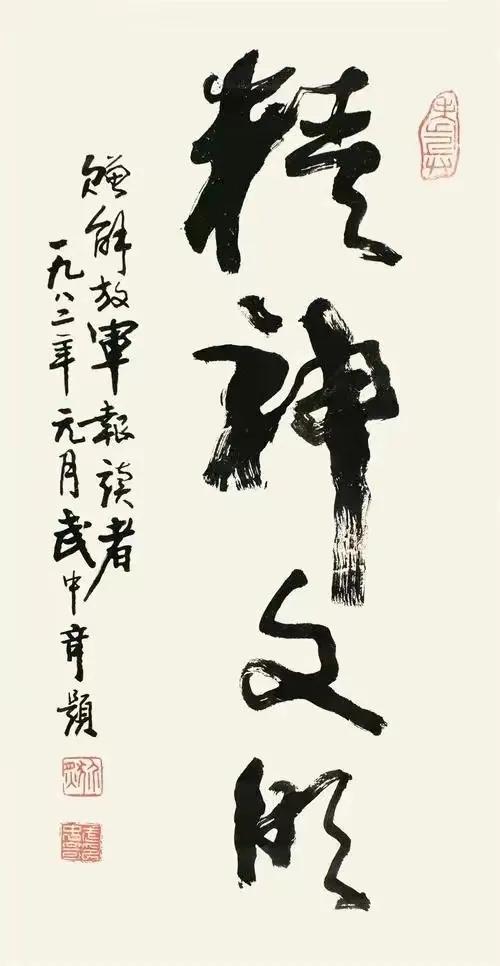 精神文明
赠解放军报读者
一九八二年元月武中奇题